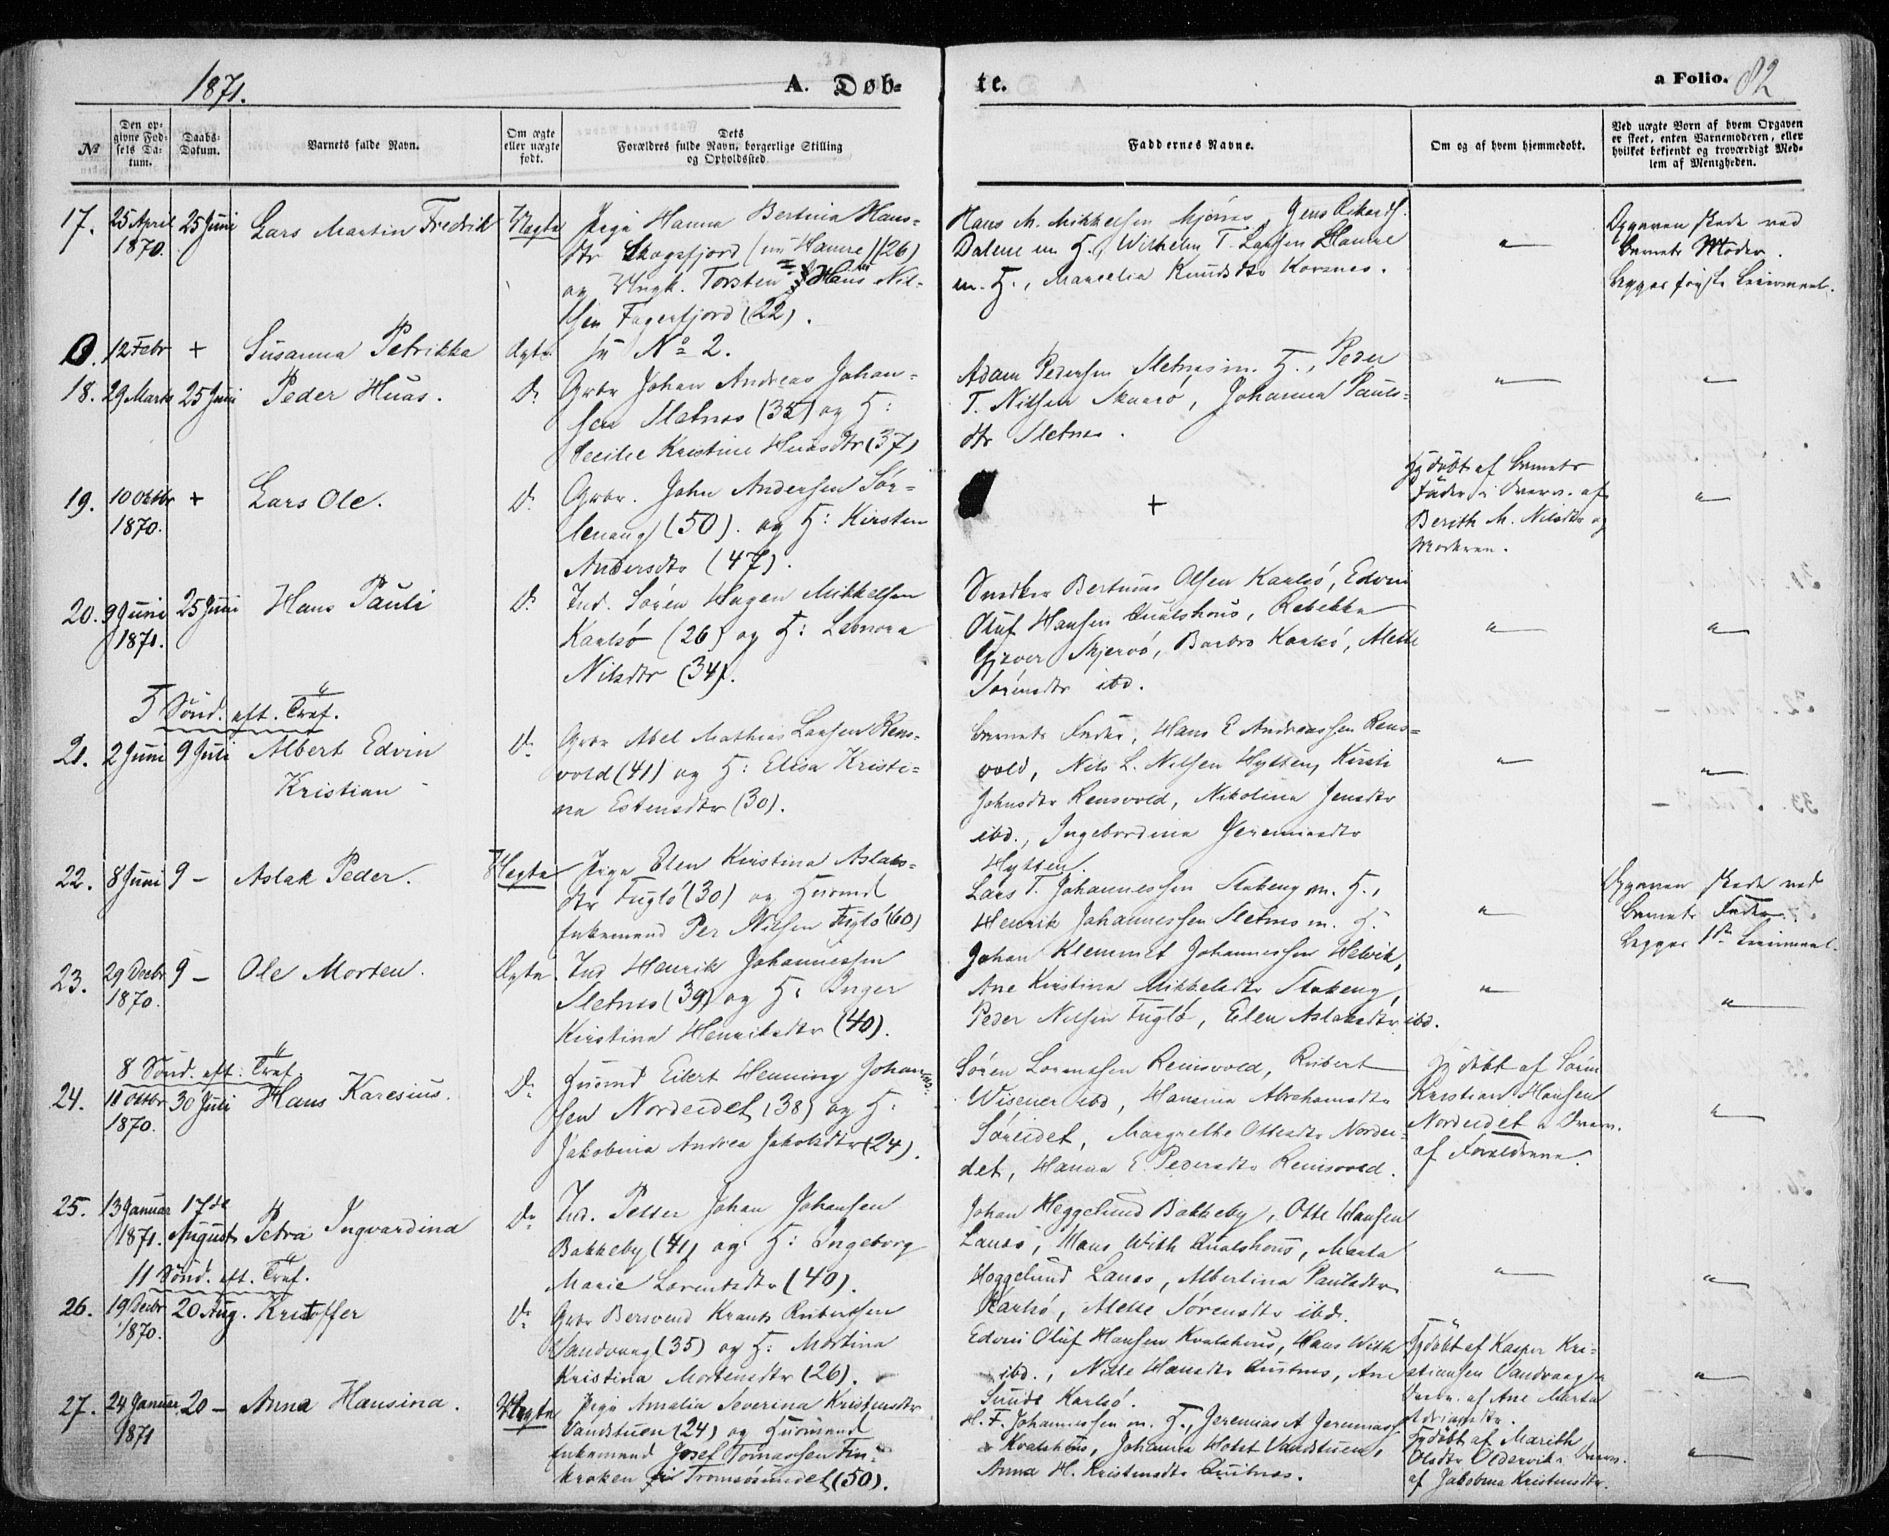 1871.
A. Døb-
te.
a Folio. 82
No
Den op-
givne Fød-
sels Da-
tum.
Daabs-
Datum.
Barnets fulde Navn.
Om ægte
eller uægte
født.
Dets
Forældres fulde Navn, borgerlige Stilling
og Opholdssted
Faddernes Navne.
Om og af hvem hjemmedøbt.
Ved uægte Børn af hvem Opgaven
er skeet, enten Barnemoderen, eller
hvilket bekjendt og troværdigt Med-
lem af Menigheden.
17. 25 April
1870.
25 Juni
Lars Martin Fredrik
Uægte
Pige Hanna Bertina Hans-
dtr Skogsfjord (26)
og Ungk. Torsten Hans Nil-
sen Fagerfjord (22).
Hans M. Mikkelsen Mjønes, Jens
Dalene m. H., Wilhelm T. Larsen Hamre
m. H., Marselia Knudsdtr Korsnes.
"
Opgaven skede ved
Barnets Moder.
Begges første Leiermaal.
0. 12 Febr + Susanna Petrikka Ægte
se No 2.
18. 29 Marts 25 Juni Peder Huas. Do
Gbr Johan Andreas Johan-
sen Sletnes (35) og H:
Cecilie Kristine Huasdtr (37)
Adam Pedersen Sletnes m. H., Peder
T. Nilsen Skaarø, Johanna Pauls-
dtr Sletnes.
"
"
19. 10 Oktbr
1870.
+ Lars Ole. Do
Gbr. John Andersen Sør-
lenang (50). og H: Kirsten
Andersdtr (47).
+
Hjdøbt af Barnets
Fader i Overv. af
Berith M. Nilsdtr og
Moderen.
"
20. 9 Juni
1871.
25 Juni Hans Pauli Do
Ind. Søren Hagen Mikkelsen
Karlsø (26) og H: Leonora
Nilsdtr (34).
Snedker Bertinus Olsen Karlsø, Edvin
Oluf Hansen Kualshous, Rebekka
Gjæver Skjervø, Barbro Karlsø, Mette
Sørensdtr ibd.
"
"
5 Sønd. eft. Tref.
21. 2 Juni 9 Juli Albert Edvin
Kristian
Do
Gbr Abel Mathias Larsen Rens-
vold (41) og H: Elisa Kristi-
na Estensdtr (30).
Barnets Fader, Hans E Andreassen Rens-
vold, Nils L. Nilsen Hytten, Kirsti
Johnsdtr Rensvold, Nikolina Jensdtr
ibd., Ingebordina Jeremiasdtr
Hytten.
"
"
22. 8 Juni 9 — Aslak Peder. Uægte
Pige Elen Kirstina Aslaks-
dtr Fuglø (30) og Husmd
Enkemand Per Nilsen Fuglø (60)
Lars T. Johannessen Stakeng m. H.,
Henrik Johannessen Sletnes m. H.
"
Opgaven skede ved
Barnets Fader.
Begges 1ste Leiermaal.
23. 29 Decbr
1870.
9 — Ole Morten. Ægte
Ind Henrik Johannessen
Sletnes (39) og H: Inger
Kirstina Henriksdtr (40).
Johan Klemmet Johannessen Helvik,
Ane Kirstina Mikkelsdtr Stakeng,
Peder Nilsen Fuglø, Elen Aslaksdtr ibd.
"
"
8 Sønd. eft. Tref.
24. 11 Oktbr
1870.
30 Juli Hans Karesius. Do
Husmd Eilert Henning Johan-
sen Nordeidet (38) og H:
Jakobina Andrea Jakobsdtr (24).
Søren Lorentsen Reinsvold, Rubert
Wisener ibd, Hansina Abrahamsdtr
Søreidet, Margrethe Ottesdtr Nordei-
det, Hanna E. Pedersdtr Reinsvold.
Hjdøbt af Søren
Kristian Hansen
Nordeidet i Overv.
af Forældrene.
"
25. 13 Januar
1871.
17de
August
Petra Ingvardina Do
Ind. Petter Johan Johansen
Bakkeby (41) og H: Ingeborg
Marie Lorentsdtr (40).
Johan Heggelund Bakkeby, Otte Hansen
Lanes, Hans With Kualshous, Marta
Heggelund Lanes, Albertina Paulsdtr
Karlsø, Mette Sørensdtr ibd.
"
"
11 Sønd. eft. Tref.
26. 19 Decbr
1870.
20 Aug. Kristoffer Do
Gbr Bersvend Krantz Rubertsen
Sandvaag (35) og H: Martina
Kristina Mortensdtr (26).
Edvin Oluf Hansen Kvalshous, Hans With
ibd., Nille Hansdtr, Ane
Sunds Karlsø.
Hjdøbt af Kasper Kri-
stiansen Sandvaag i
Overv. af Ane Marta
"
27. 24 Januar
1871
20 — Anna Hansina. Uægte
Pige Amalia Severina Kristensdtr
Vandstuen (24) og Husmand
Enkemand Josef Tomassen Fin-
kroken i Tromsøsundet (50).
H. F. Johannessen m. H., Jeremias A Jeremiass
Kvalshous, Johanna Holst Vandstuen,
Anna H. Kristensdtr.
Hjdøbt af Marith
Olsdtr Oldervik i Overv.
af Jakobina Kristensdtr.
"